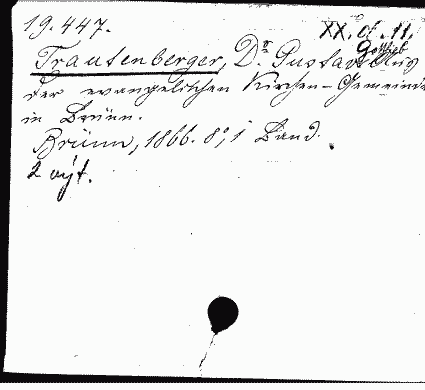 19.447.
XX. d. 11.
Gottlieb
Trautenberger, Dr Gustav
der evangelischen Kirchen-Gemeinde
in Brünn.
Brünn, 1866. 8°, 1 Band.
2